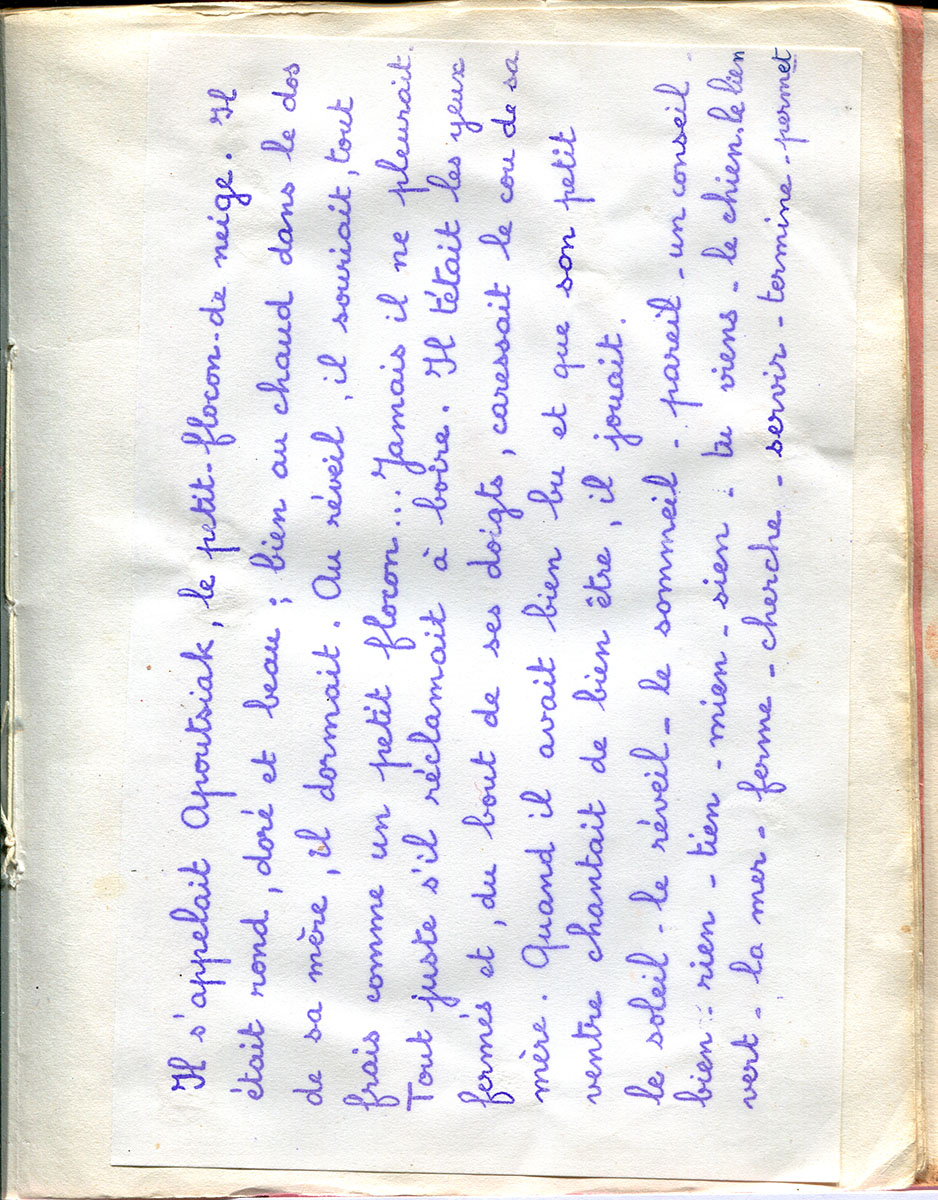 Il s'appelait Apoutsiak, le petit-flocon-de neige. Il
était rond, doré et beau ; bien au chaud dans le dos
de sa mère, il dormait. Au réveil, il souriait, tout
frais comme un petit flocon... Jamais il ne pleurait.
Tout juste s'il réclamait à boire. Il tétait les yeux
fermés et, du bout de ses doigts, caressait le cou de sa
mère. Quand il avait bien bu et que son petit
ventre chantait de bien être, il jouait.
le soleil - le réveil - le sommeil - pareil - un conseil -
bien - rien - tien - mien - sien - tu viens - le chien. le lien
vert - la mer - ferme - cherche - servir - termine - permet